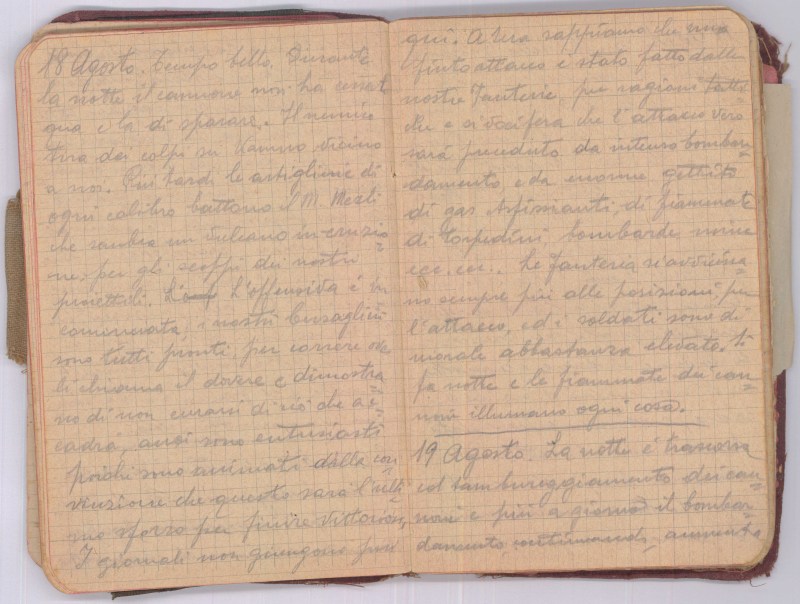 18 Agosto. Tempo bello. Durante
la notte il cannone non ha cessat
qua e la di sparare. Il nemico
tira dei colpi su vicino
a noi. Più tardi le artiglierie di
ogni calibro battono il M. Mrzli
che sembra un vulcano in eruzio=
ne, per gli scoppi dei nostri
proiettili. L'offensiva è in
cominciata, i nostri bersaglieri
sono tutti pronti, per correre ove
li chiama il dovere e dimostra=
no di non curarsi di ciò che ac=
cadrà, anzi sono entusiasti
poichè sono animati dalla con
vinzione che questo sarà l'ulti
mo sforzo per finire vittoriosi,
I giornali non giungono fino
qui. A sera sappiamo che una
finto attacco è stato fatto dalle
nostre Fanterie, per ragioni tatti
che e si vocifera che l'attacco vero
sarà preceduto da intenso bombar=
damento, e da enorme gettito
di gas Asfissianti, di fiammate
di torpedini, bombarde, mine
ecc. ecc.. Le Fanterie si avvicina=
no sempre più alle posizioni per
l'attacco, ed i soldati sono di
morale abbastanza elevato. Si
fa notte e le fiammate dei can=
noni illumano ogni cosa.
19 Agosto. La notte è trascorsa
col tambureggiamento dei can=
noni e più a giorno il bombar=
damento continuando, aumenta